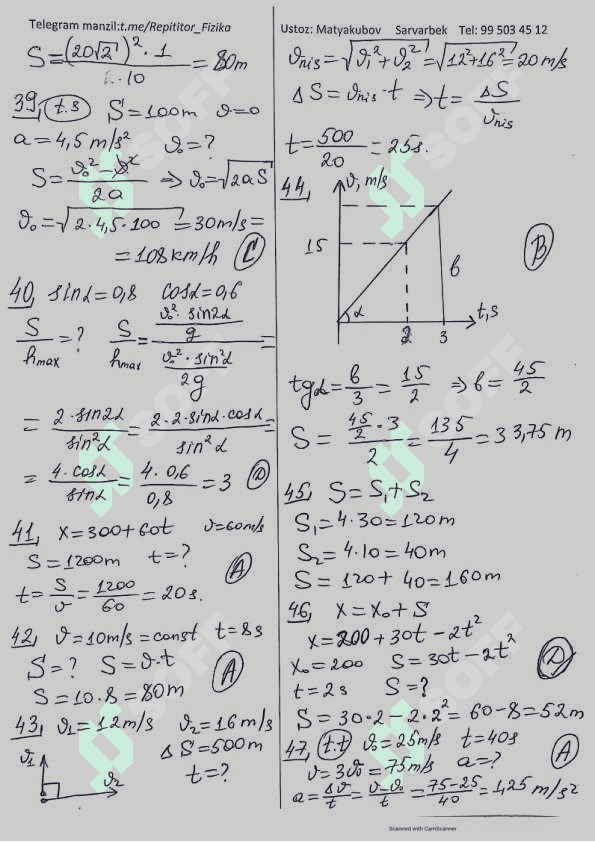 Telegram manzil:t.me/Repititor_Fizika
Ustoz: Matyakubov Sarvarbek Tel: 99 503 45 12
S=(20√2)²·1/2·10=80m
39, t.s S=100m ϑ=0
a=4,5m/s² ϑ₀=?
S=ϑ₀²-ϑ²/2a ⇒ ϑ₀=√2aS
ϑ₀=√2·4,5·100=30m/s=
=108km/h C
40, sinα=0,8 cosα=0,6
S/hmax=? S/hmax=(ϑ₀²·sin2α/g)/(ϑ₀²·sin²α/2g)=
=2·sin2α/sin²α=2·2·sinα·cosα/sin²α=
=4·cosα/sinα=4·0,6/0,8=3 D
41, x=300+60t ϑ=60m/s
S=1200m t=?
t=S/ϑ=1200/60=20s. A
42, ϑ=10m/s=const t=8s
S=? S=ϑ·t
S=10·8=80m A
43, ϑ₁=12m/s ϑ₂=16m/s
ΔS=500m
t=?
ϑ₁
ϑ₂
ϑnis=√ϑ₁²+ϑ₂²=√12²+16²=20m/s
ΔS=ϑnis·t ⇒ t=ΔS/ϑnis
t=500/20=25s.
44, ϑ, m/s
15
B
b
α
t,s
2 3
tgα=b/3=15/2 ⇒ b=45/2
S=(45/2·3)/2=135/4=33,75m
45, S=S₁+S₂
S₁=4·30=120m
S₂=4·10=40m
S=120+40=160m
46, x=x₀+S
x=200+30t-2t²
x₀=200 S=30t-2t² D
t=2s S=?
S=30·2-2·2²=60-8=52m
47, t.t ϑ₀=25m/s t=40s
ϑ=3ϑ₀=75m/s a=? A
a=Δϑ/t=ϑ-ϑ₀/t=75-25/40=1,25m/s²
Scanned with CamScanner
SOFF
SOFF
SOFF
SOFF
SOFF
SOFF